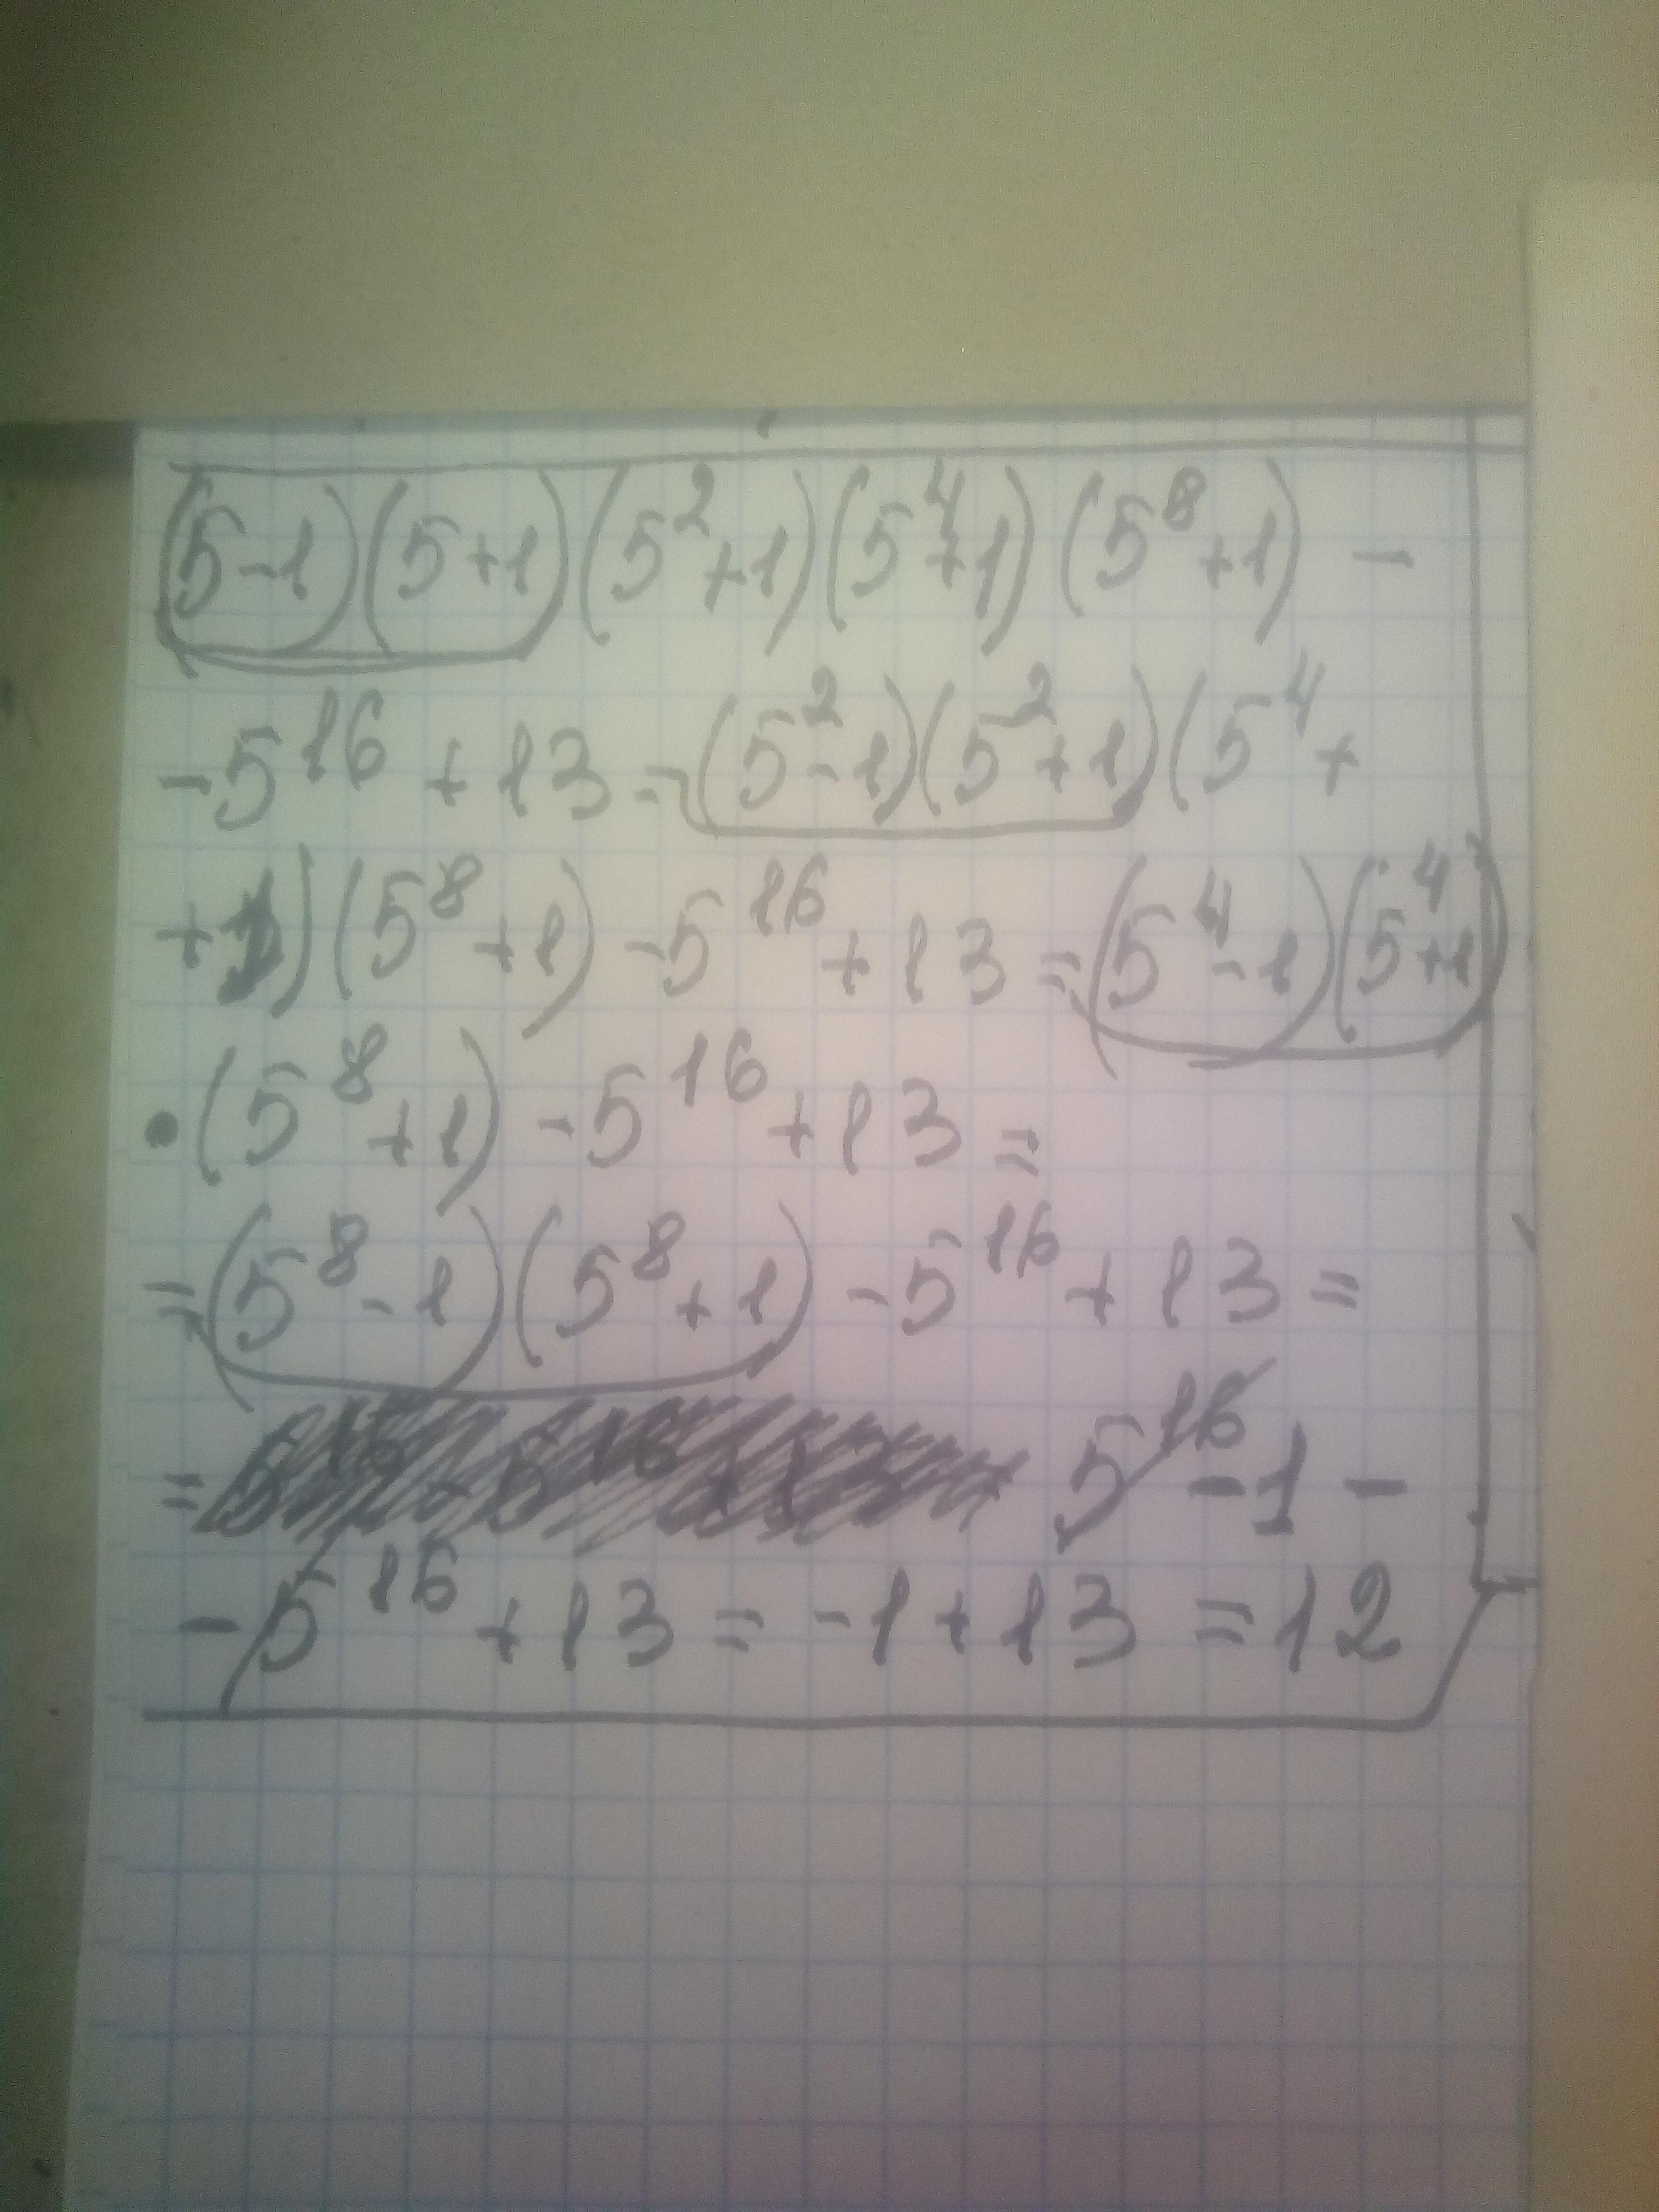 (5-1)(5+1)(5²+1)(5⁴+1)(5⁸+1) -
-5¹⁶+13=(5²-1)(5²+1)(5⁴+
+1)(5⁸+1)-5¹⁶+13=(5⁴-1)(5⁴+1)
•(5⁸+1)-5¹⁶+13=
=(5⁸-1)(5⁸+1)-5¹⁶+13=
= 5¹⁶-1-
-5¹⁶+13=-1+13=12